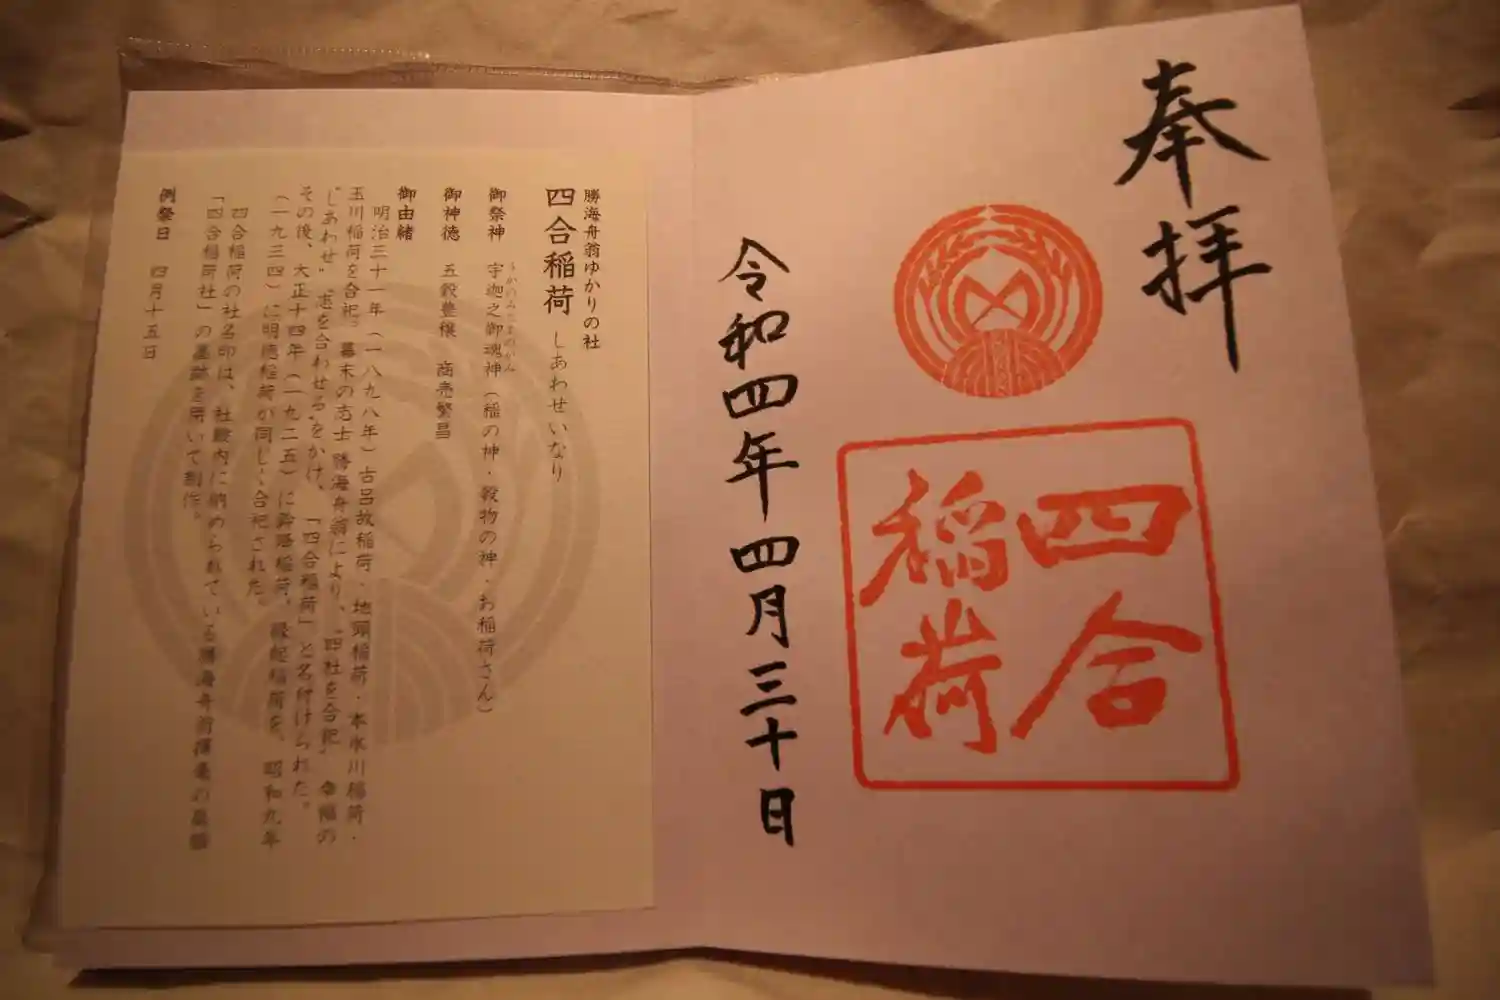 奉拝
四合
稲荷
令和四年四月三十日
勝海舟翁ゆかりの社
四合稲荷 しあわせいなり
うかのみたまのかみ
御祭神 宇迦之御魂神(稲の神・穀物の神・お稲荷さん)
御神徳 五穀豊穣 商売繁昌
御由緒
明治三十一年(一八九八年)古呂故稲荷・地頭稲荷・本氷川稲荷・
玉川稲荷を合祀。幕末の志士 勝海舟翁により、“四社を合祀” 幸福の
“しあわせ” “志を合わせる”をかけ、「四合稲荷」と名付けられた。
その後、大正十四年(一九二五)に幹隆稲荷、縁起稲荷を、昭和九年
(一九三四)に明徳稲荷が同じく合祀された。
四合稲荷の社名印は、社殿内に納められている勝海舟翁揮毫の
「四合稲荷社」の墨跡を用いて制作。
例祭日 四月十五日